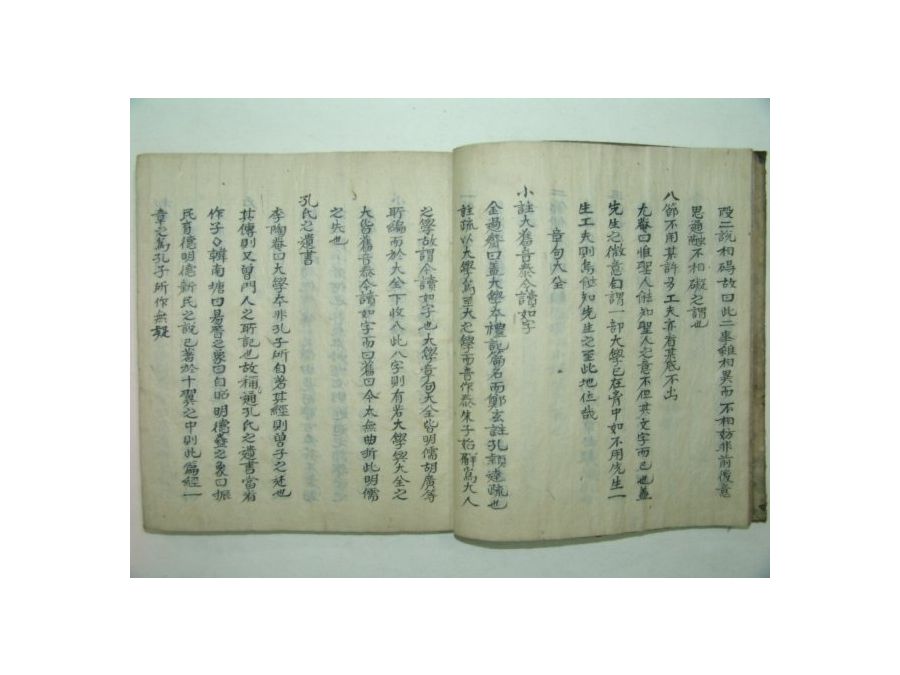 段二說相碍故曰此二事雖相異而不相妨非前後意
思通融不相礙之謂也
八節不用某許多工夫亦看某底不出
九菴曰惟聖人能知聖人之意不但其文字而已也盖
先生之微意自謂一部大學已在胷中如不用先生一
生工夫則焉能知先生之至此地位哉
章句大全
小註大舊音泰今讀如字
金過齋曰盖大學本禮記篇名而鄭玄註孔穎達疏也
註疏以大學爲至大之學而音作泰朱子始釋爲大人
之學故謂今讀如字也大學章句大全皆明儒胡廣等
所編而於大全下收入此八字則有若大學與大全之
大皆舊音泰今讀如字而曰舊曰今太無曲折此明儒
之失也
孔氏之遺書
李陶菴曰大學本非孔子所自著其經則曾子之述也
其傳則又曾門人之所記也故稱通孔氏之遺書當看
作子 韓南塘曰易晋之象曰自昭明德蠱之象曰振
民育德明德新民之說已著於十翼之中則此篇經一
章之爲孔子所作無疑